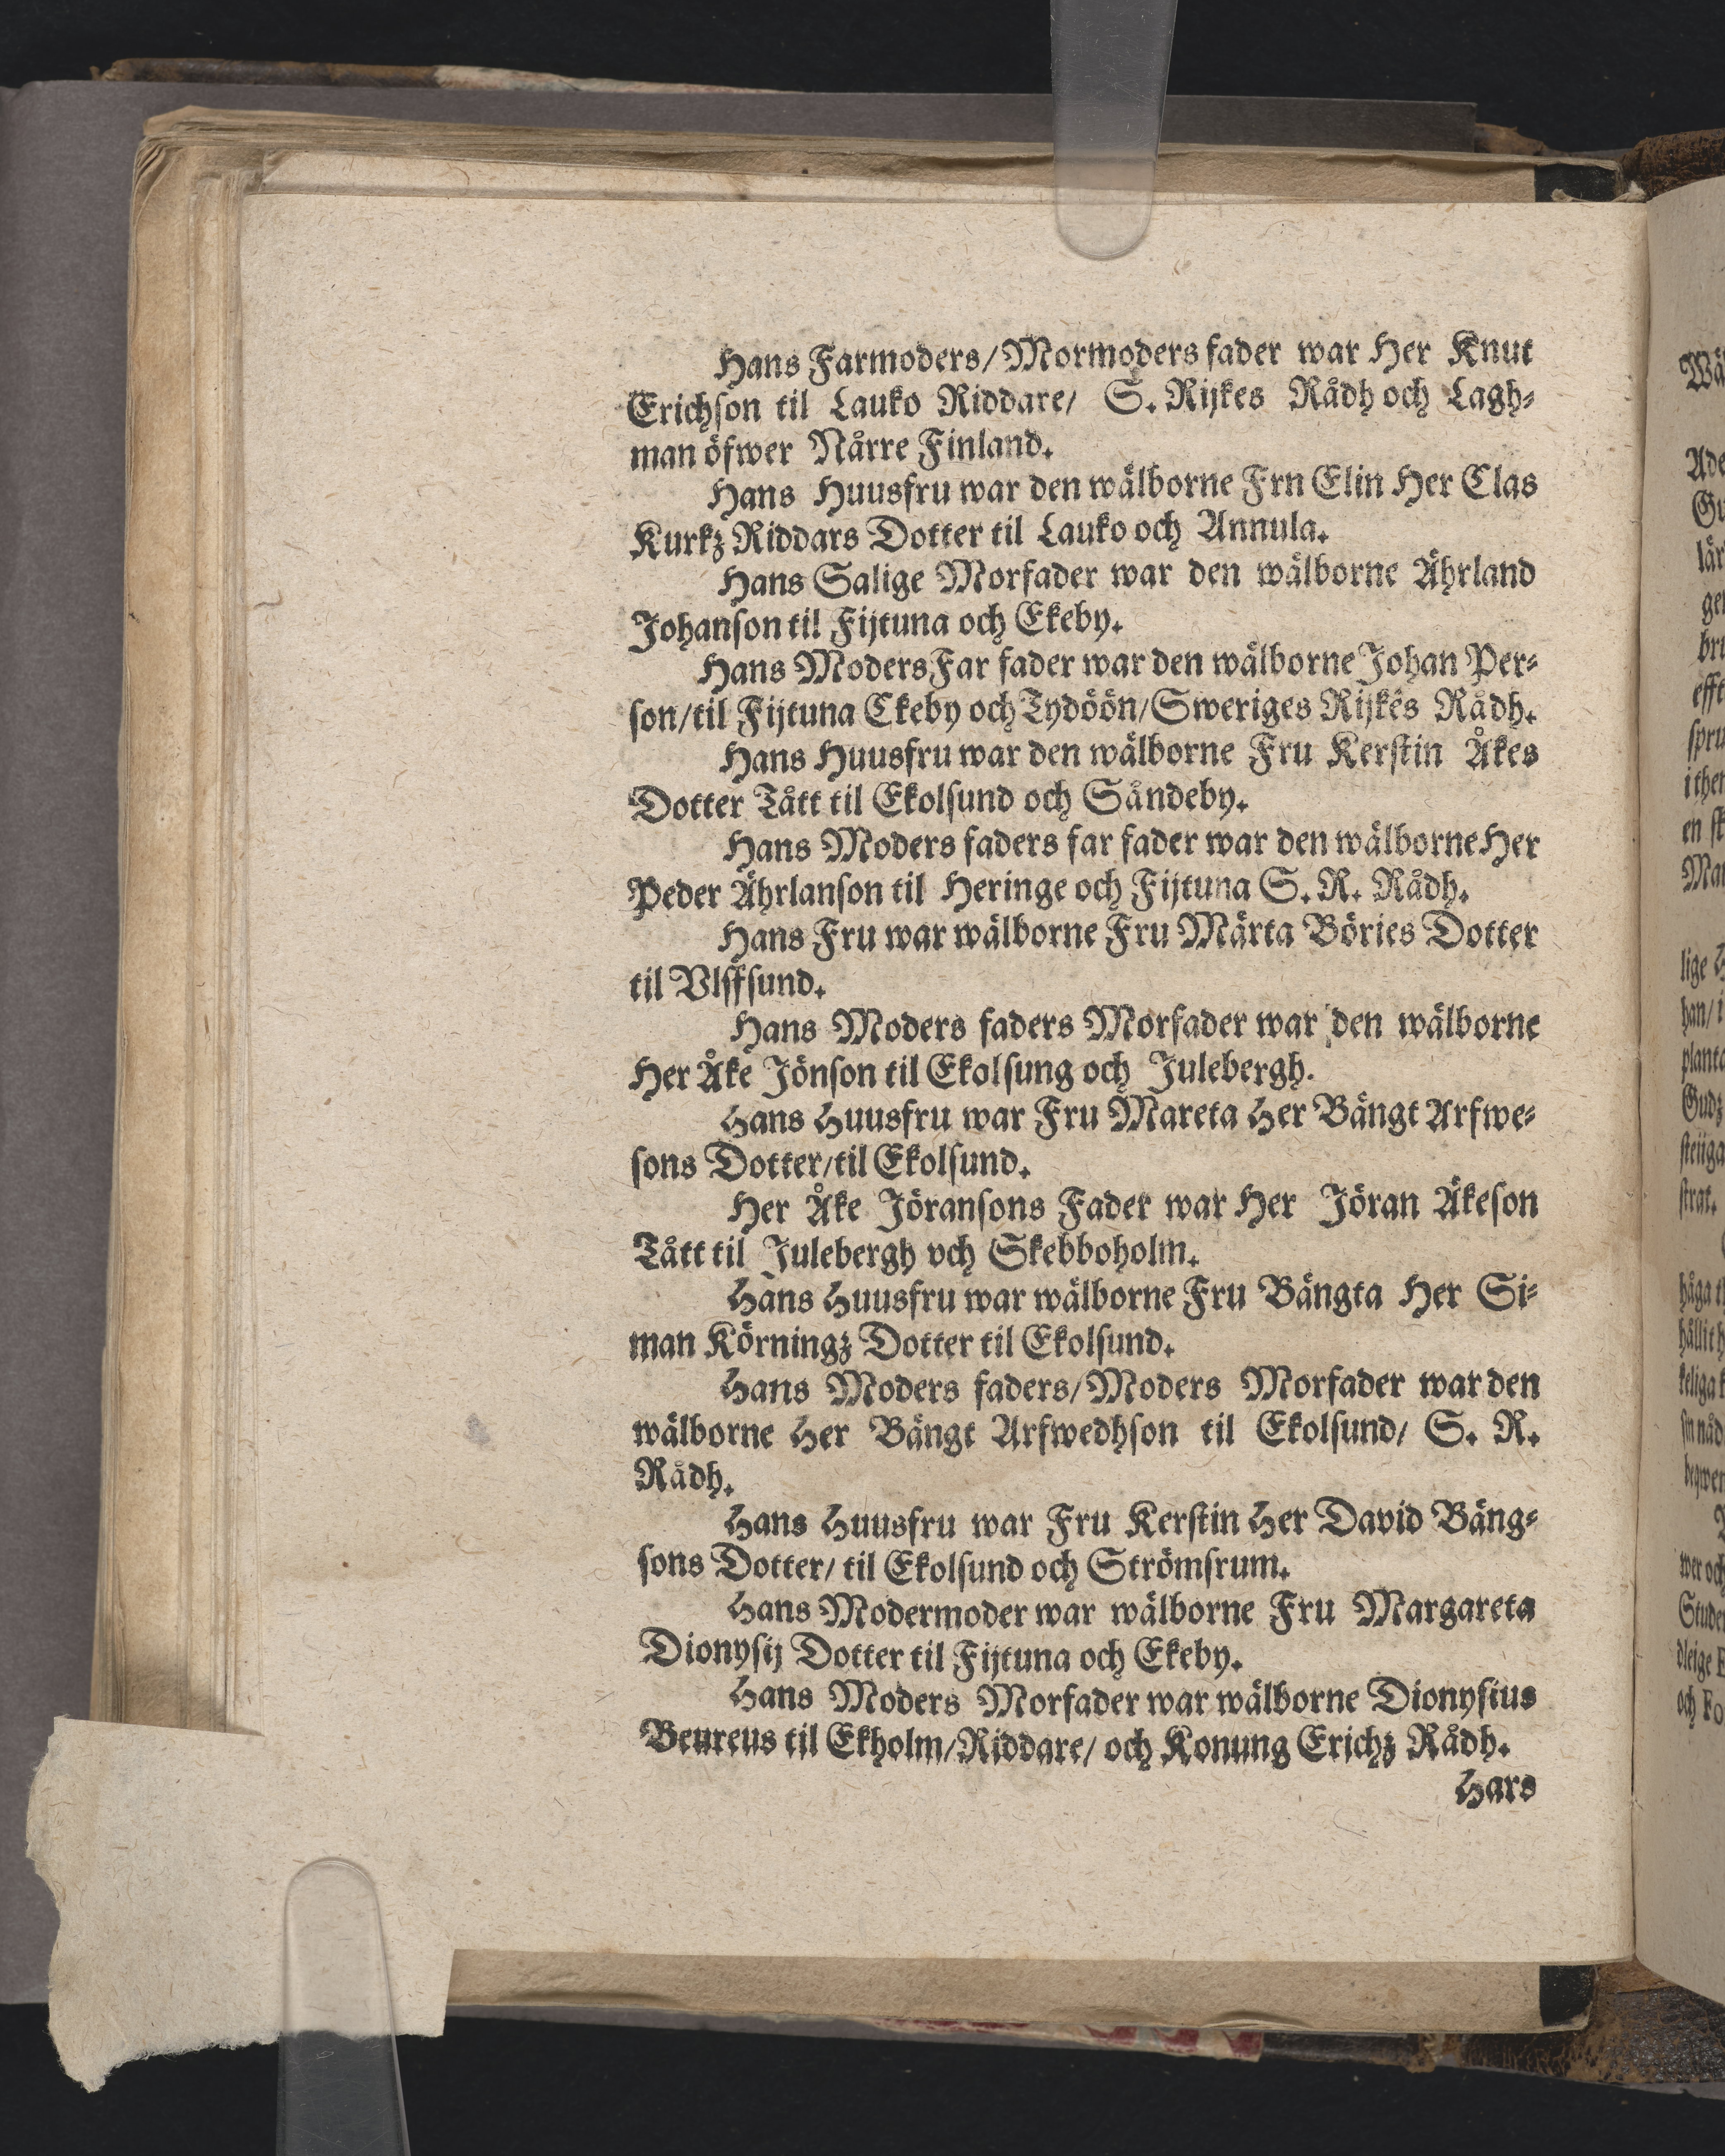 Hans Farmoders/Mormoders fader war Her Knut
Erichson til Lauko Riddare/ S. Rijkes Rådh och Lagh-
man öfwer Nårre Finland.
Hans Huusfru war den wälborne Frn Elin Her Clas
Kurkz Riddars Dotter til Lauko och Annula.
Hans Salige Morfader war den wälborne Ährland
Johanson til Fijtuna och Ekeby.
Hans Moders Far fader war den wälborne Johan Per-
son/til Fijtuna Ckeby och Tydöön/Sweriges Rijkes Rådh.
Hans Huusfru war den wälborne Fru Kerstin Åkes
Dotter Tått til Ekolsund och Såndeby.
Hans Moders faders far fader war den wälborne Her
Peder Ährlanson til Heringe och Fijtuna S. R. Rådh.
Hans Fru war wälborne Fru Märta Böries Dotter
til Vlffsund.
Hans Moders faders Morfader war den wälborne
Her Åke Jönson til Ekolsung och Julebergh.
Hans Huusfru war Fru Mareta Her Bängt Arfwe-
sons Dotter/til Ekolsund.
Her Åke Jöransons Fader war Her Jöran Äkeson
Tått til Julebergh vch Skebboholm.
Hans Huusfru war wälborne Fru Bängta Her Si-
man Körningz Dotter til Ekolsund.
Hans Moders faders/Moders Morfader war den
wälborne Her Bängt Arfwedhson til Ekolsund/ S. R.
Rådh.
Hans Huusfru war Fru Kerstin Her David Bäng-
sons Dotter/ til Ekolsund och Strömsrum.
Hans Modermoder war wälborne Fru Margareta
Dionysij Dotter til Fijtuna och Ekeby.
Hans Moders Morfader war wälborne Dionysius
Beureus til Ekholm/Riddare/ och Konung Erichz Rådh.
Hars